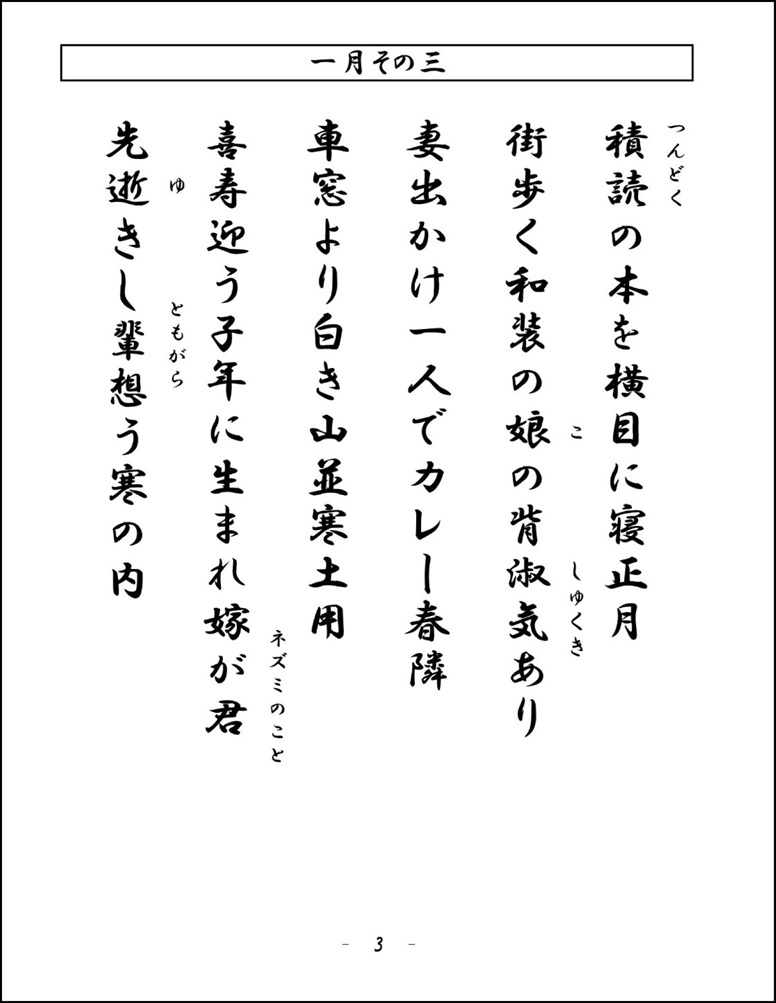 一月その三
つんどく
積読の本を横目に寝正月
こ しゅくき
街歩く和装の娘の背淑気あり
妻出かけ一人でカレー春隣
車窓より白き山並寒土用
ネズミのこと
喜寿迎う子年に生まれ嫁が君
ゆ ともがら
先逝きし輩想う寒の内
- 3 -